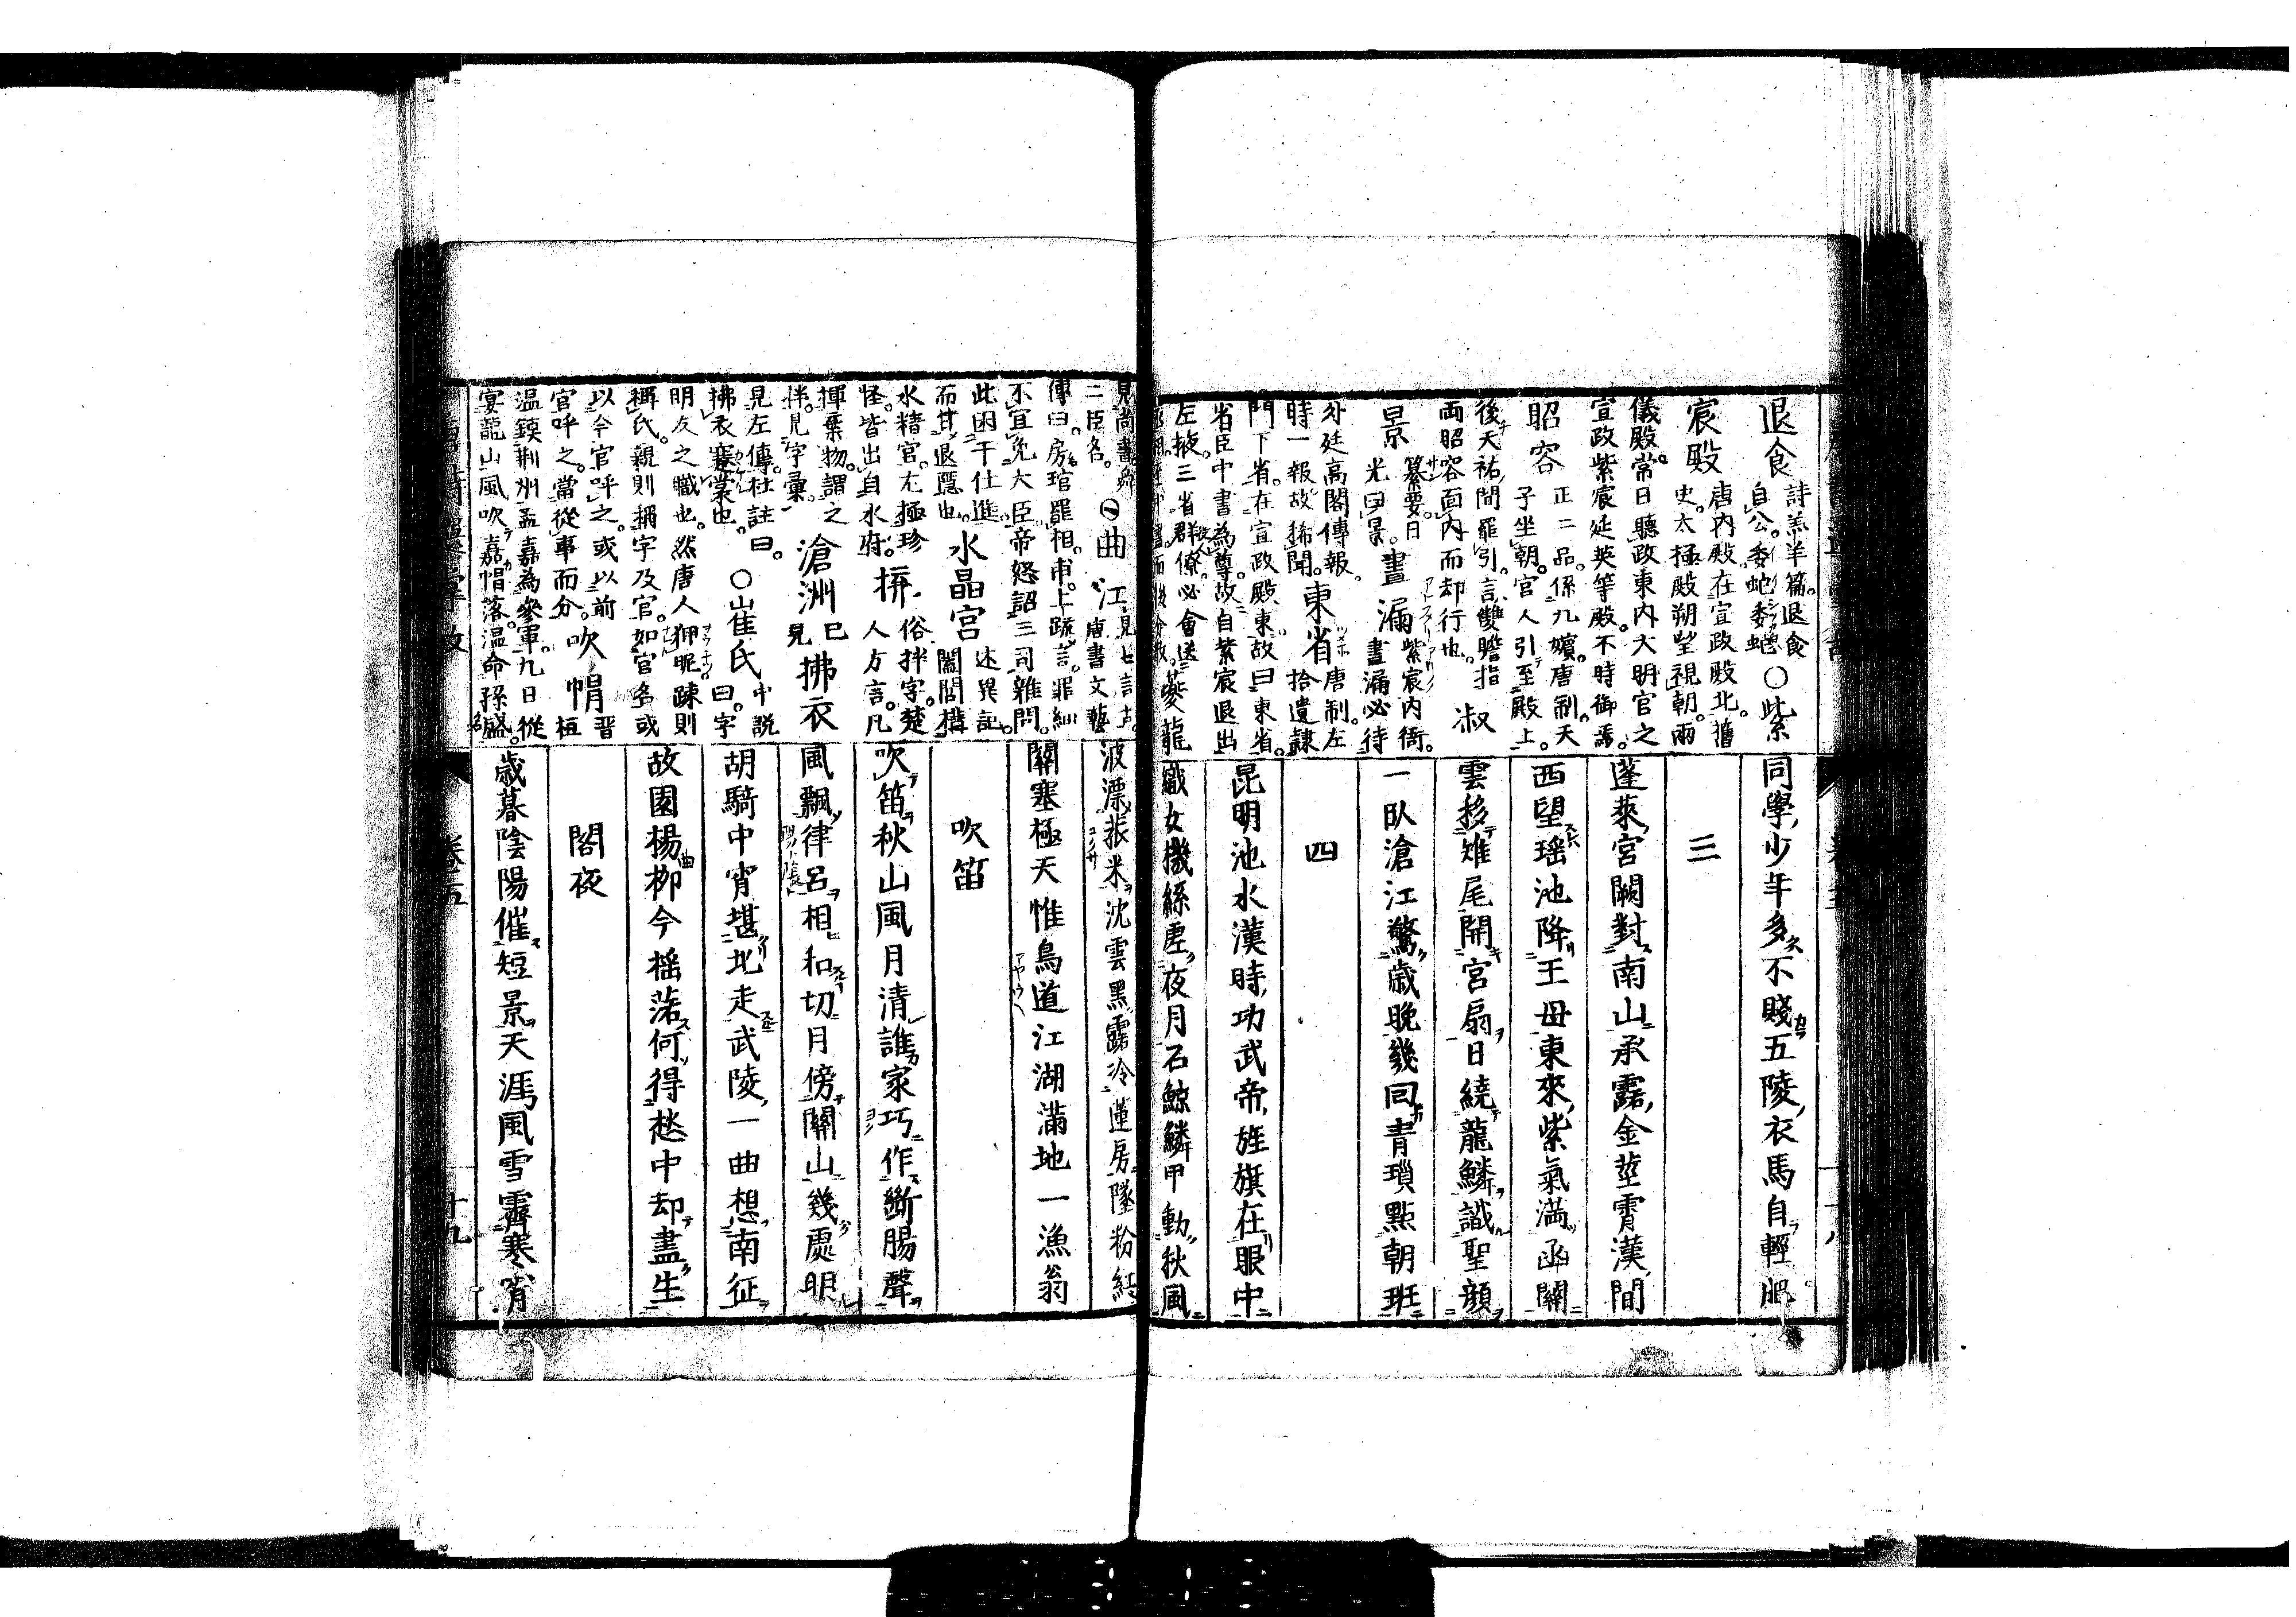 退食
詩羔羊篇。退食
自公。委蛇委蛇
○紫
宸殿
唐内殿在宣政殿北。舊
史。太極殿朔望視朝。兩
儀殿常日聽政東内大明宮之
宣政紫宸延英等殿。不時御焉。
昭容
正二品。係九嬪。唐制。天
子坐朝。官人引至殿上。
後天祐間罷引。言雙瞻指
両昭容面内而却行也。
淑
景
纂要。日
光曰景。
晝漏
紫宸内衙。
晝漏必待
外廷高閣傳報。
時一報故稀聞。
東省
唐制。左
拾遺隷
門下省。在宣政殿東。故曰東省。
省臣中書為尊。故自紫宸退出
左掖。三省群僚必會送
夔龍
同學少年多不賤五陵衣馬自輕肥
三
蓬萊宮闕對南山承露金莖霄漢間
西望瑶池降王母東來紫氣滿函關
雲移雉尾開宮扇日繞龍鱗識聖顔
一臥滄江驚歲晚幾回青瑣點朝班
四
昆明池水漢時功武帝旌旗在眼中
織女機絲虛夜月石鯨鱗甲動秋風
見尚書舜
二臣名。
曲江
見七言古
唐書文藝
傳曰。房琯罷相。甫上疏言。罪細
不宜免大臣。帝怒詔三司雜問。
此困于仕進
而甘退隱也。
水晶宮
述異記。
闔閭搆
水精宮。尤極珍
怪。皆出自水府。
拚
俗拌字。楚
人方言。凡
揮棄物。謂之
拌。見字彙
滄洲
已
見
拂衣
見左傳。杜註曰。
拂衣褰裳也。
○崔氏
中説
曰。字
明友之職也。然唐人狎昵疎則
稱氏。親則稱字及官。如官名或
以今官呼之。或以前
官呼之。當從事而分。
吹帽
晋
桓
温鎮荆州孟嘉為參軍。九日從
宴龍山風吹嘉帽落。温命孫盛。
波漂菰米沈雲黒露冷蓮房墜粉紅
關塞極天惟鳥道江湖滿地一漁翁
吹笛
吹笛秋山風月清誰家巧作斷腸聲
風飄律呂相和切月傍關山幾處明
胡騎中宵堪北走武陵一曲想南征
故園楊柳今搖落何得愁中却盡生
閣夜
歳暮陰陽催短景天涯風雪霽寒宵
卷五
十九